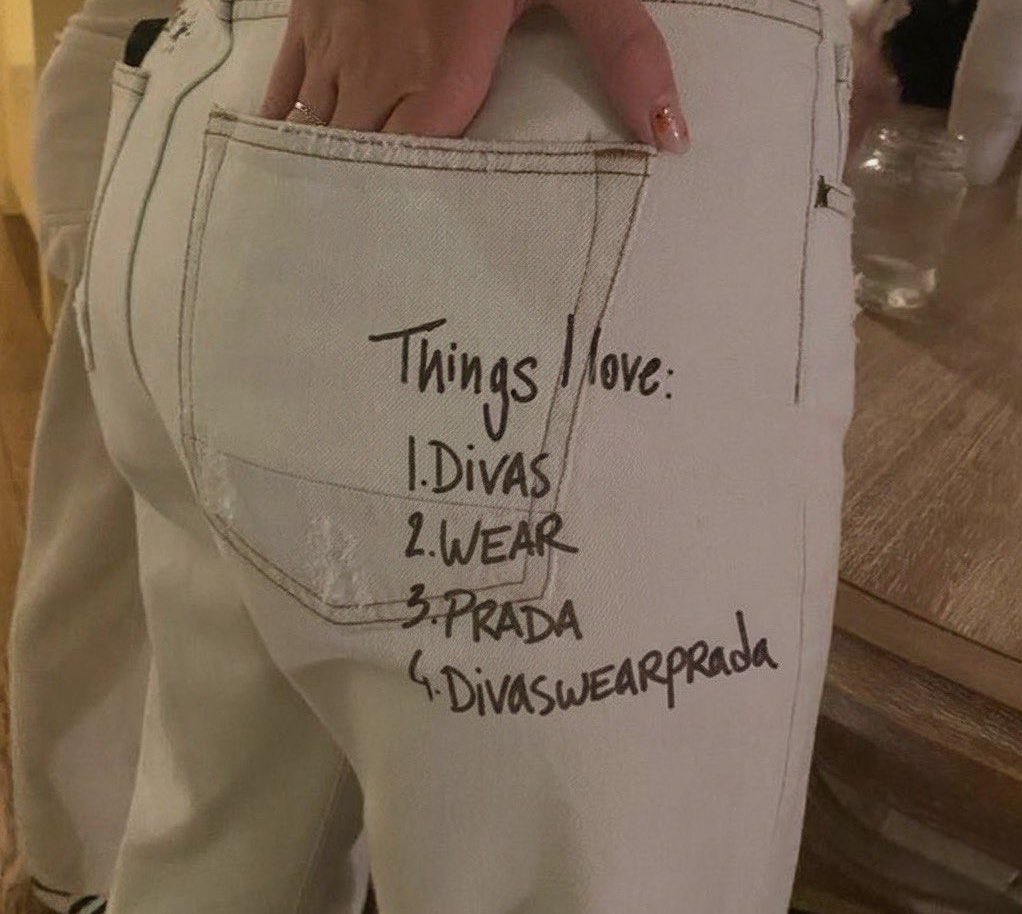 Things I love:
1.DIVAS
2.WEAR
3.PRADA
4.DivaswEARpRada